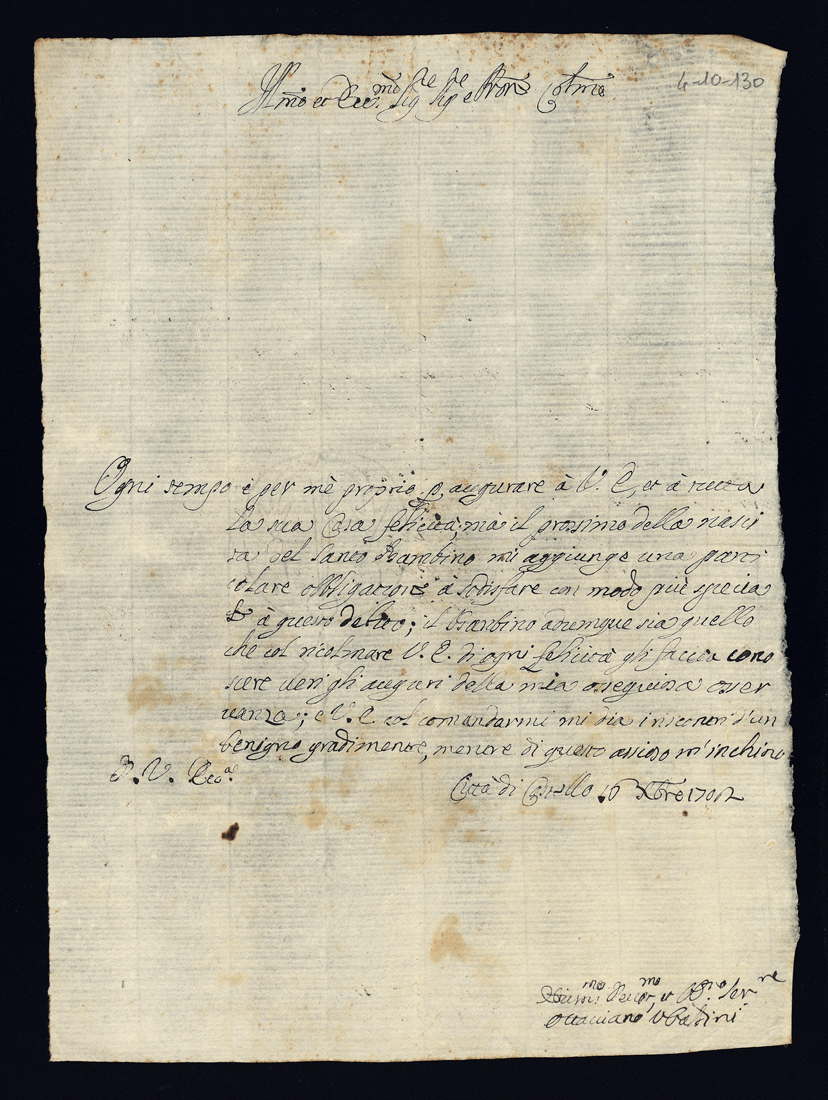 4-10-130
Ill.mo et Ecc.mo Sig.re Sig.re e Pron.e Col.mo
Ogni tempo è per mè proprio p augurare à V. E, et à tutta
la sua Casa felicità; mà il prossimo della nasci
ta del Santo Bambino mi aggiunge una parti
colare obbligatione à sodisfare con modo più specia
le à questo debito; il Bambino adumque sia quello
che col ricolmare V. E. di ogni felicità gli faccia cono
scere veri gli auguri della mia ossequiosa osser
vanza; e V. E. col comandarmi mi dia riscontri d'un
benigno gradimento, mentre di questo ansioso m'inchino
D. V. Ecc.a
Città di Castello 16 Xbre 1702
Obbl.mo Ser.re
Ottaviano Ubaldini